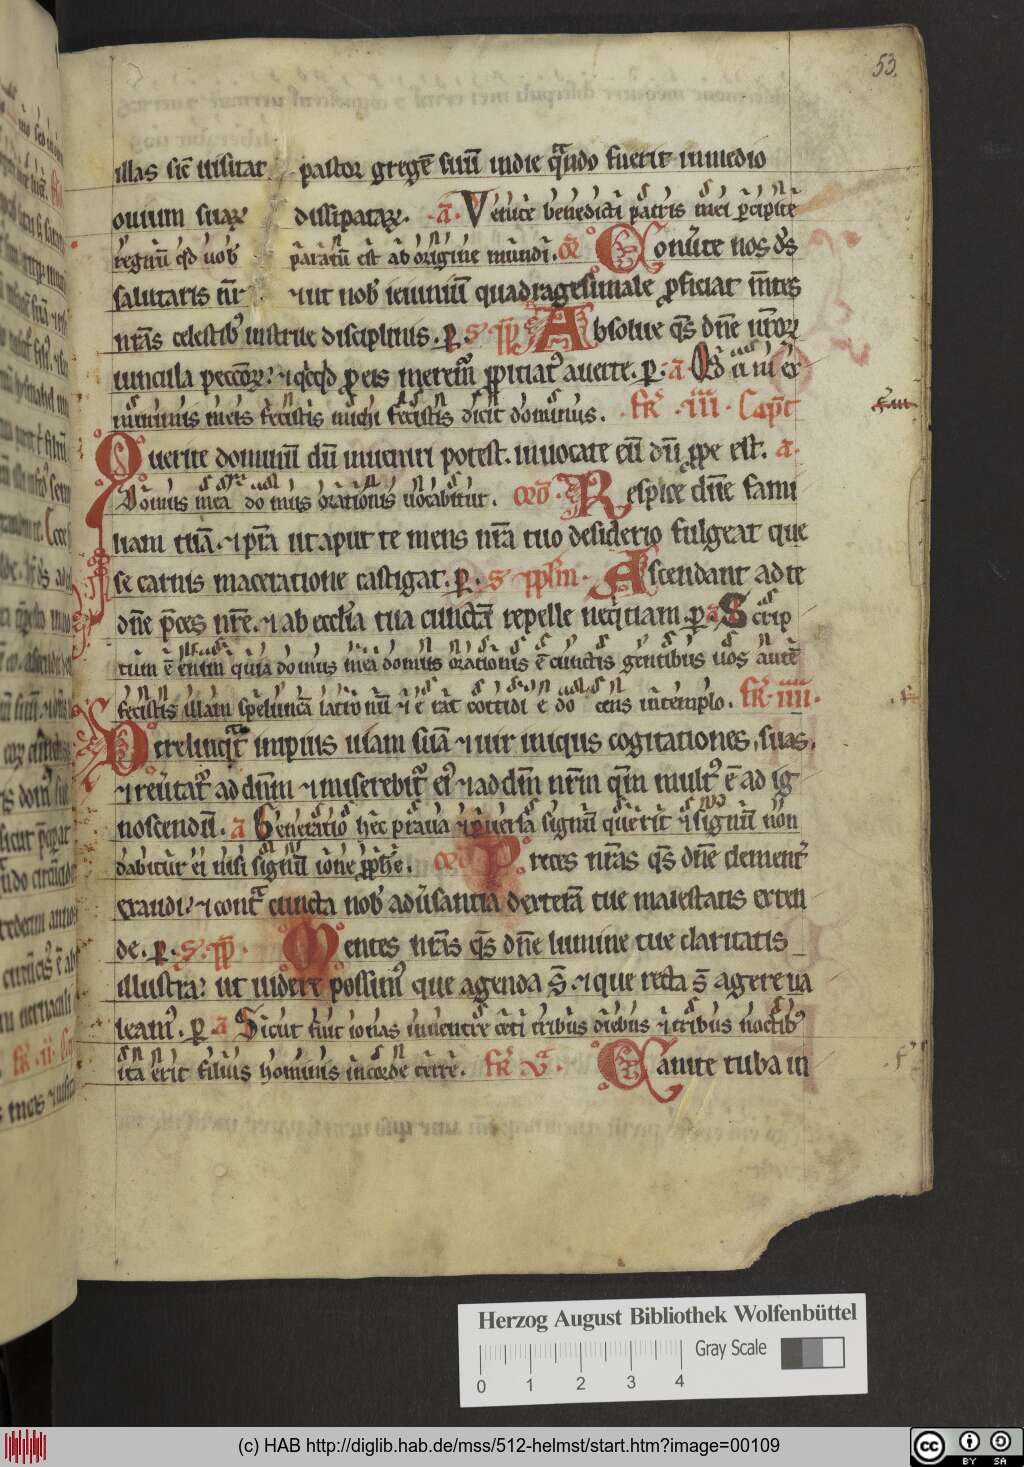 53.
illas sic̄ uisitat pastor gregē suū in die qᷓndo fuerit in medio
ouium suaꝝ dissipataꝝ. a᷃. Venite benedicti patris mei ꝑcipite
regnū qd uob̄ paratū est ab origine mundi. or̄ Conuˀte nos dˢ
salutaris nr̄ ⁊ ut nob̄ ieiuniū quadragesimale ꝓficiat mētes
nrās celestibꝰ instrue disciplinis. ꝑ. s. pp̄ Absolue qs̄ dn̄e nr̄oꝝ
uincula peccōꝝ. ⁊ qͥcqͥd ꝓ eis merem̄ ꝓpitiatꝰ auerte. ꝑ. a᷃ Qd̄ uni ex
minimis meis fecistis michi fecistis dicit dominus. fr̄. iii. Capt̄
Querite dominū dū inueniri potest. inuocate eū dū ꝓpe est. a᷃.
Domus mea domus orationis uocabitur. orō. Respice dn̄e fami
liam tuā. ⁊ pr̄a ut aput te mens nr̄a tuo desiderio fulgeat que
se carnis maceratione castigat. ꝑ. s pp̄lm. Ascendant ad te
dn̄e p̄ces nr̄e. ⁊ ab eccl̄ia tua cunctā repelle nequitiam. ꝑ. a᷃ Scrip
tum ē enim quia domus mea domus orationis ē cunctis gentibus uos autē
fecistis illam speluncā latronū ⁊ erat cottidie docens in templo. fr̄. iiii.
Derelinqᷓt impius uiam suā ⁊ uir iniqus cogitationes suas,
⁊ reuˀtatˀ ad dn̄m ⁊ miserebitˀ eiꝰ ⁊ ad dm̄ nr̄m qm̄ multꝰ ē ad ig
noscendū. a᷃ Generatio hec praua ⁊ ꝑuersa signū querit ⁊ signū non
dabitur ei nisi signū ione ꝓph̄e. orō Preces nr̄as qs̄ dn̄e clementˀ
exaudi. ⁊ contᷓ cuncta nob̄ aduˀsantia dexterā tue maiestatis exten
de. ꝑ. s. pp̄. Mentes nr̄as qs̄ dn̄e lumine tue claritatis
illustra. ut uidere possimꝰ que agenda s̄. ⁊ que recta s̄ agere ua
leamꝰ. ꝑ a᷃ Sicut fuit ionas in uentre ceti tribus diebus ⁊ tribus noctibꝰ
ita erit filius hominis in corde terre. fr̄. v. Canite tuba in
Herzog August Bibliothek Wolfenbüttel
Gray Scale
0 1 2 3 4
(c) HAB http://diglib.hab.de/mss/512-helmst/start.htm?image=00109
cc BY SA